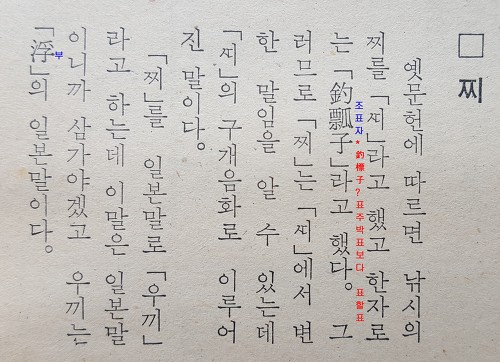 □ 찌
옛문헌에 따르면 낚시의
찌를 「ᄯᅵ」라고 했고 한자로
는 「釣瓢子」라고 했다. 그
조표자 * 釣標子?표주박표보다 표할표
러므로 「찌」는 「ᄯᅵ」에서 변
한 말임을 알 수 있는데
「ᄯᅵ」의 구개음화로 이루어
진 말이다.
「찌」를 일본말로 「우끼」
라고 하는데 이말은 일본말
이니까 삼가야겠고 우끼는
부
「浮」의 일본말이다.